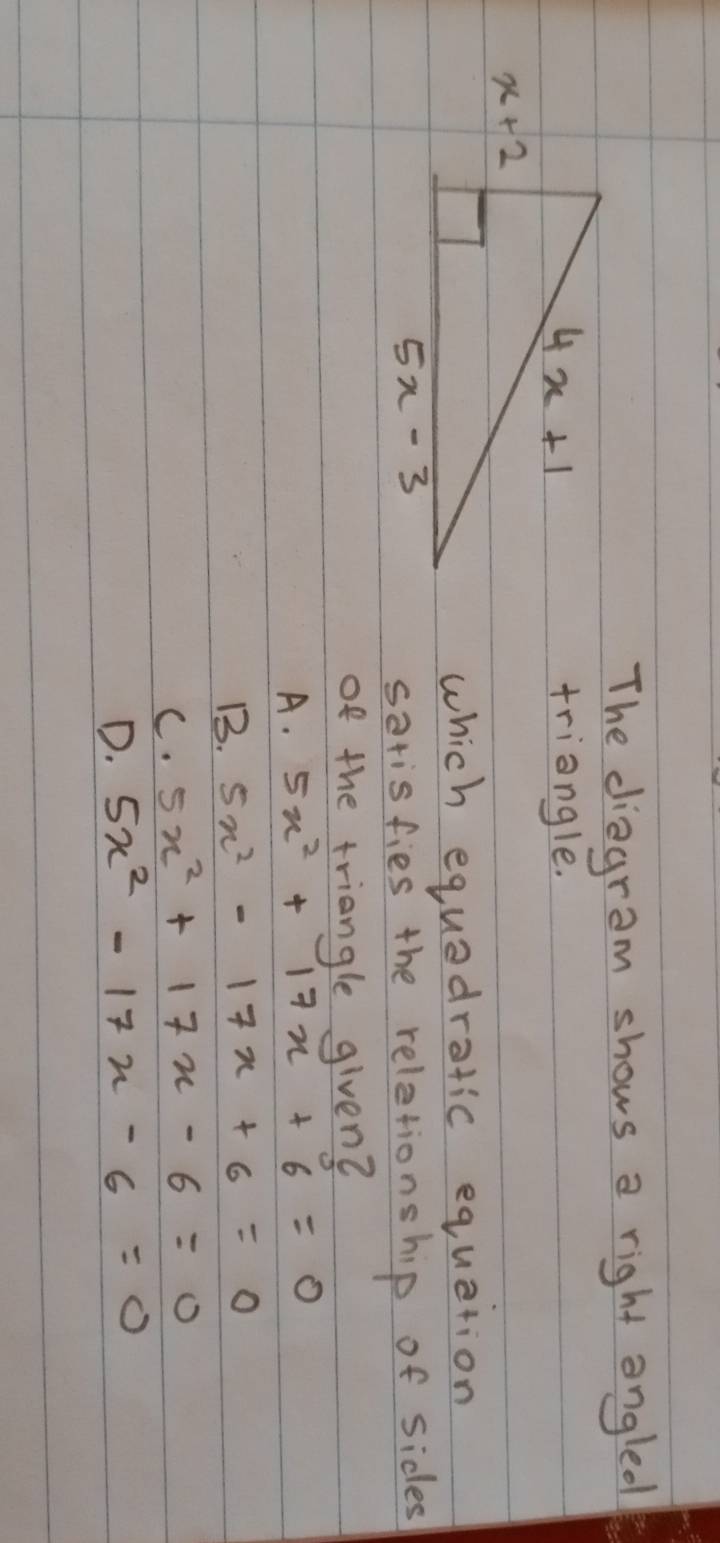 The diagram shows a right angled
triangle.
4x+1
x+2
5x-3
which equadratic equation
satisfies the relationship of sides
of the triangle given?
A. 5x² + 17x + 6 = 0
B. 5x² - 17x + 6 = 0
C. 5x² + 17x - 6 = 0
D. 5x² - 17x - 6 = 0